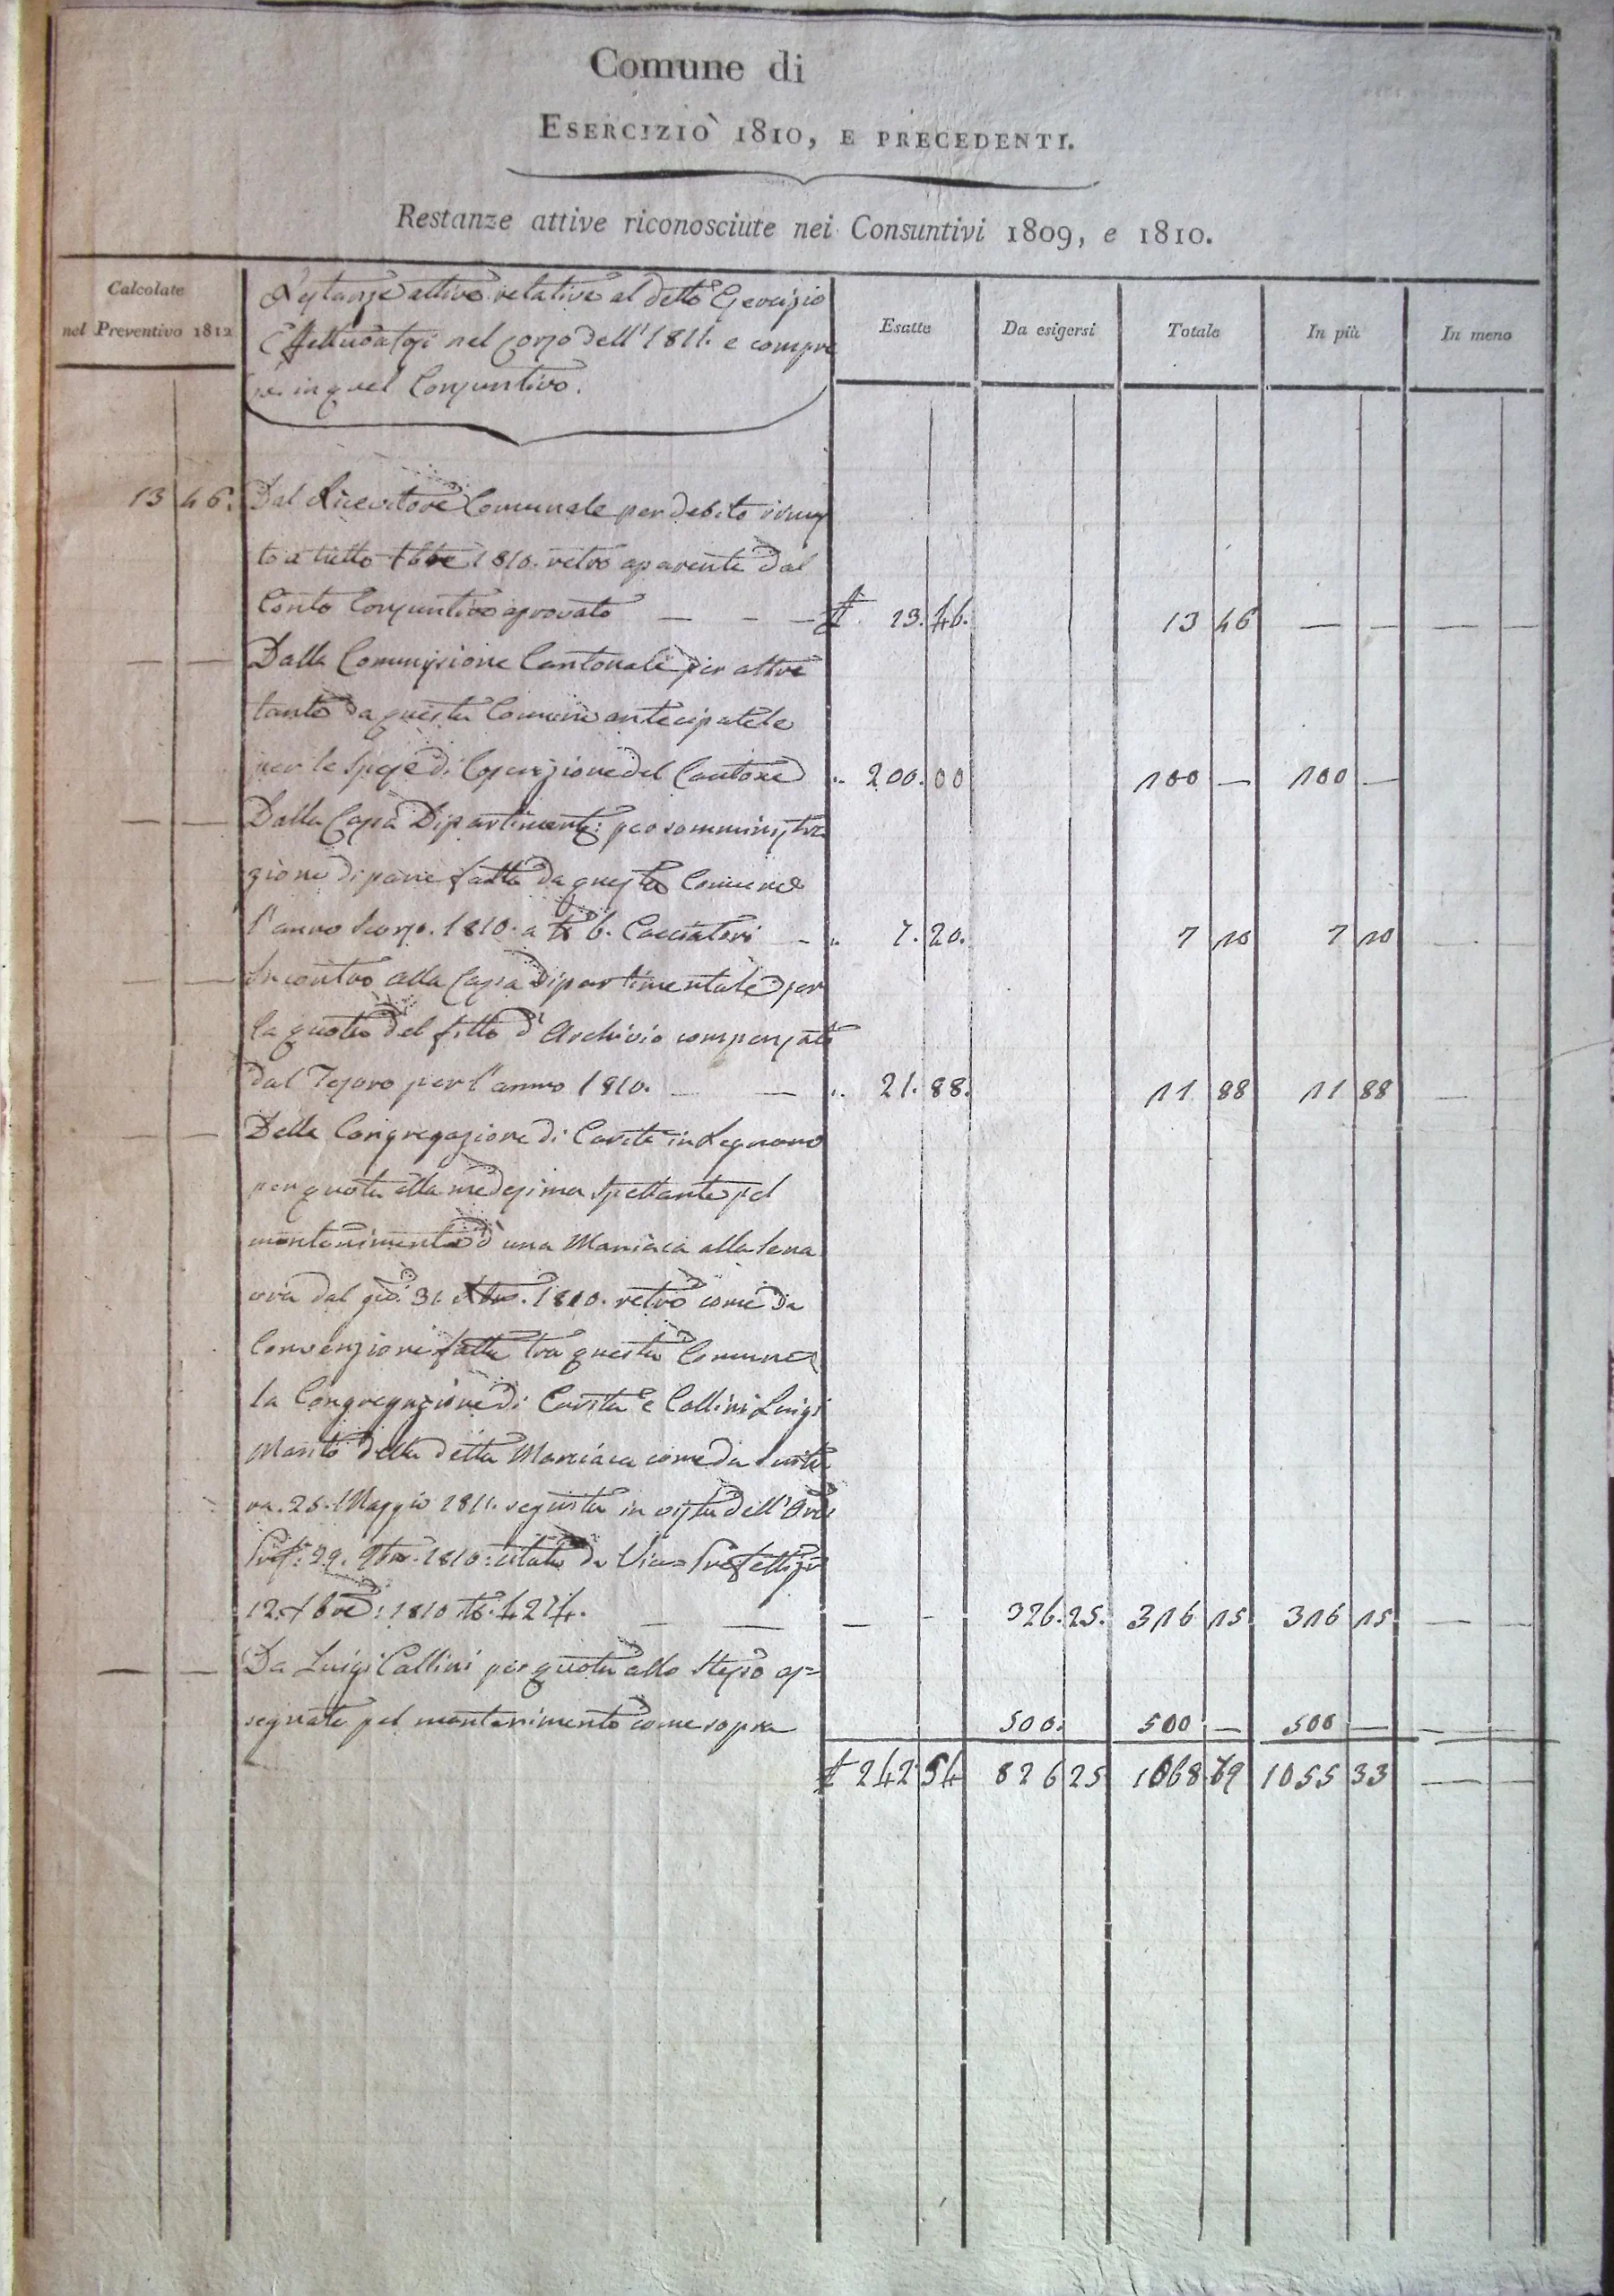 Comune di
ESERCIZIO 1810, E PRECEDENTI.
Restanze attive riconosciute nei Consuntivi 1809, e 1810.
Calcolate
nel Preventivo 1812
Restanze attive relative al detto Esercizio
Effettuatesi nel corso dell' 1811. e compre
se in quel Consuntivo.
Esatte
Da esigersi
Totale
In più
In meno
13 46. Dal Ricevitore Comunale per debito rimas
to a tutto Xbre 1810. retro aparente dal
Conto Consuntivo aprovato — - — 23. 46. 13 46 — — — —
— — Dalla Commissione Cantonale per altre
tante da questa Comune antecipatele
per le Spese di Coscrizione del Cantone „ 200. 00 200 — 200 —
— — Dalla Cassa Dipartiment: per somministra
zione di pane fatta da questa Comune
l'anno scorso. 1810. a 6. Cacciatori - „ 7. 20. 7 20 7 20
— — Incontro alla Cassa Dipartimentale per
la quota del fitto d' Archivio compensate
dal Tesoro per l'anno 1810. — — „ 21. 88. 21 88 21 88 —
— — Dalla Congregazione di Carità in Legnano
per quota alla medesima Spettante pel
mantenimento d' una Maniaca alla Sena
vra dal 31. 1810. retro come da
Convenzione fatta tra questa Comune
la Congregazione di Carità e Collini Luigi
Marito della detta Maniaca come da Scrittu
ra. 26. Maggio 1811. seguita in vista dell' Ord:
Pref: 29. 9bre. 1810. citato da Vice=Prefettizio
12. Xbre: 1810 N. 4214. — — — - 326. 25. 326 25 326 25 — —
— — Da Luigi Collini per quota allo Stesso as=
segnata pel mantenimento come sopra 500. 500 — 500 — — —
242 54 826 25 1068 79 1055 33 — —